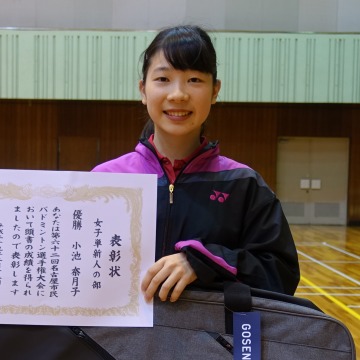 表彰状
女子単新人の部
優勝 小池 奈月子
あなたは第六十二回名古屋市民
バドミントン選手権大会に
おいて頭書の成績を得られ
ましたので表彰します
YONEX
GOSEN
GOSEN